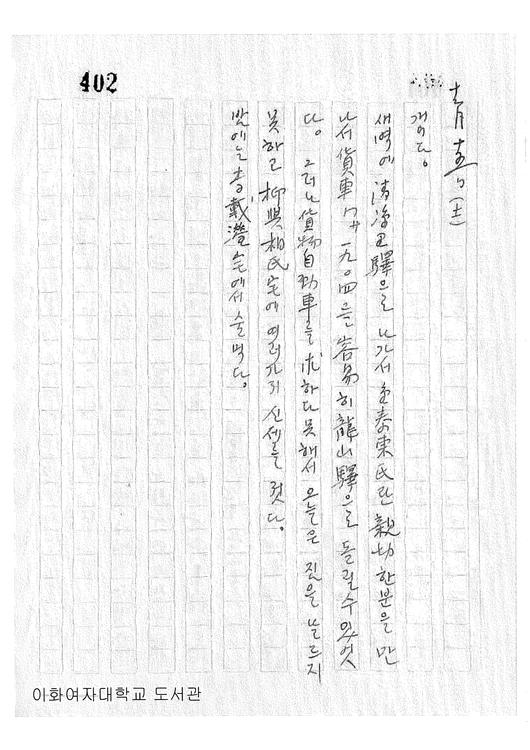 402
十一月 十五日 (土)
개이다。
새벽에 淸凉里驛으로 나가서 金泰東氏란 親切한분을 만
나서 貨車 一九〇四을 容易히 龍山驛으로 돌릴수있엇
다。 그러나 貨物自動車를 求하다못해서 오늘은 짐을 풀르지
못하고 柳興相氏宅에 여러가지 신세를 젓다。
밤에는 李戴瀅宅에서 술먹다。
이화여자대학교 도서관